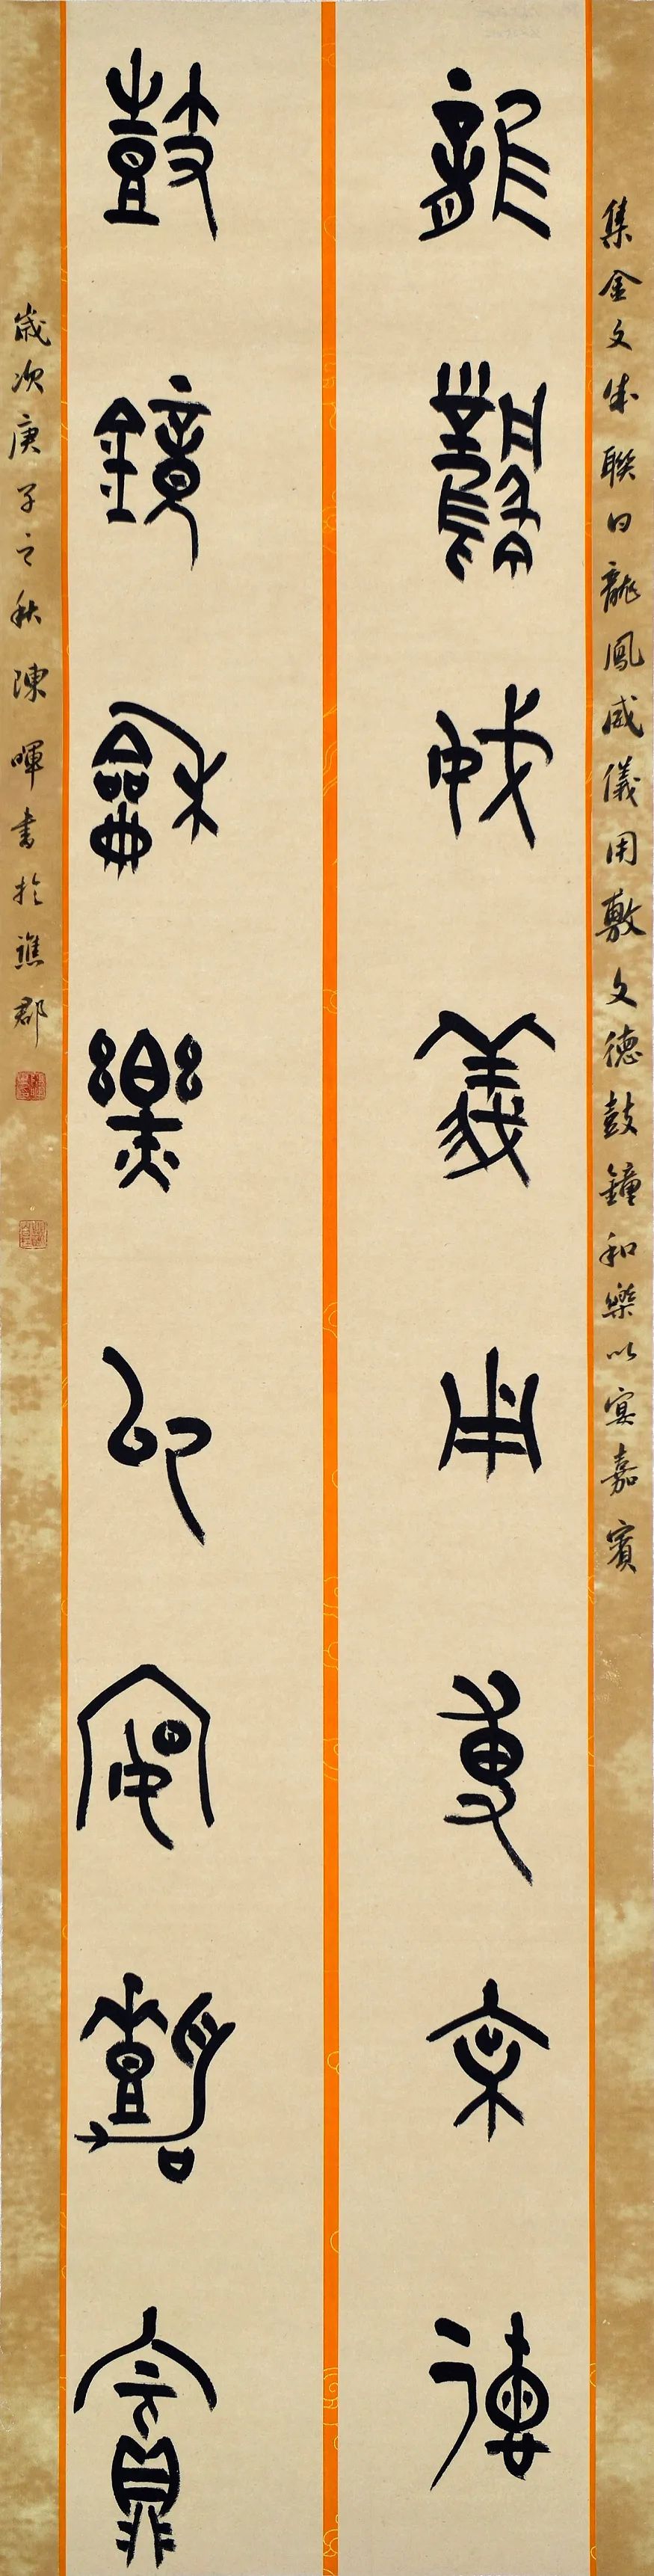 集金文成聯曰龍鳳威儀用敷文德鼓鐘和樂以宴嘉賓
龍鳳威儀用敷文德
鼓鐘龢樂以宴嘉賓
歲次庚子之秋陳暉書於譙郡